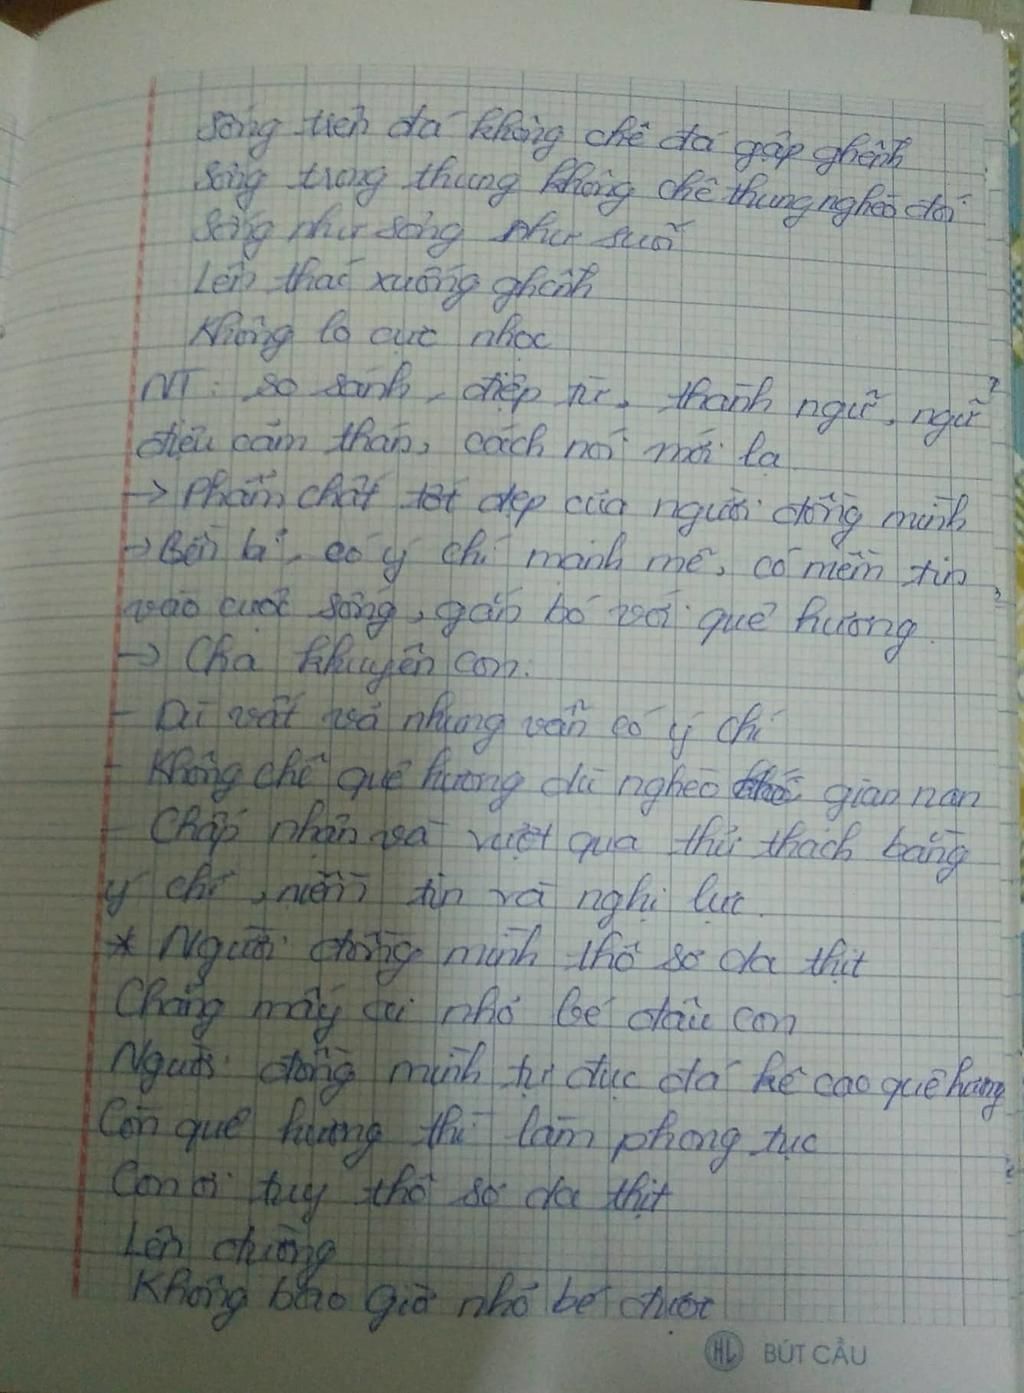 Sống trên đá không chê đá gập ghềnh
Sống trong thung không chê thung nghèo đói
Sống như sông như suối
Lên thác xuống ghềnh
Không lo cực nhọc
NT: so sánh, điệp từ, thành ngữ, ngữ
điệu cảm thán, cách nói mới lạ
-> Phẩm chất tốt đẹp của người đồng mình
-> Bền bỉ, có ý chí mạnh mẽ, có niềm tin
vào cuộc sống, gắn bó với quê hương.
-> Cha khuyên con:
- Dù vất vả nhưng vẫn có ý chí
- Không chê quê hương dù nghèo gian nan
- Chấp nhận và vượt qua thử thách bằng
ý chí, niềm tin và nghị lực.
* Người đồng mình thô sơ da thịt
Chẳng mấy ai nhỏ bé đâu con
Người đồng mình tự đục đá kê cao quê hương
Còn quê hương thì làm phong tục
Con ơi tuy thô sơ da thịt
Lên đường
Không bao giờ nhỏ bé được
HL BÚT CẦU